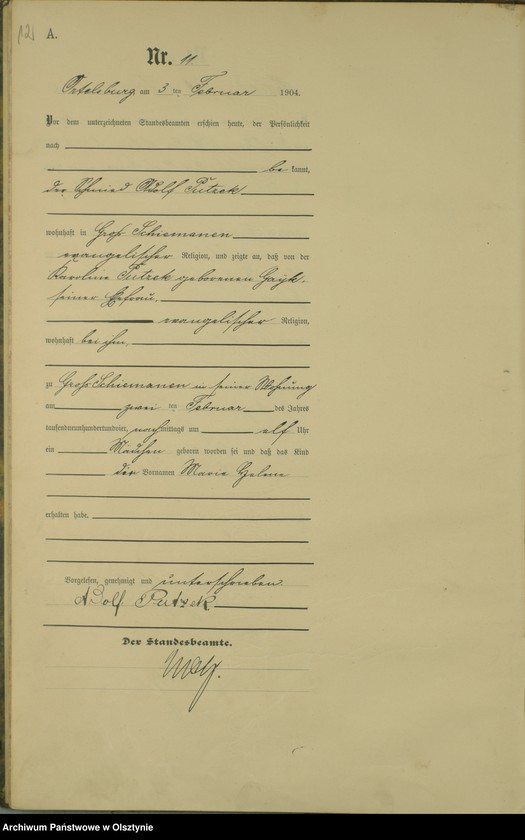 121 A.
Nr. 11
Ortelsburg am 3 ten Februar 1904.
Vor dem unterzeichneten Standesbeamten erschien heute, der Persönlichkeit
nach
be kannt,
der Schmied Adolf Putzek
wohnhaft in Groß Schiemanen
evangelischer Religion, und zeigte an, daß von der
Karoline Putzek geborenen Gayk,
seiner Ehefrau,
evangelischer Religion,
wohnhaft bei ihm,
zu Groß Schiemanen in seiner Wohnung
am zwei ten Februar des Jahres
tausendneunhundertundvier, nachmittags um elf Uhr
ein Mädchen geboren worden sei und daß das Kind
die Vornamen Marie
erhalten habe.
Vorgelesen, genehmigt und unterschrieben.
Adolf Putzek
Der Standesbeamte.
Archiwum Państwowe w Olsztynie